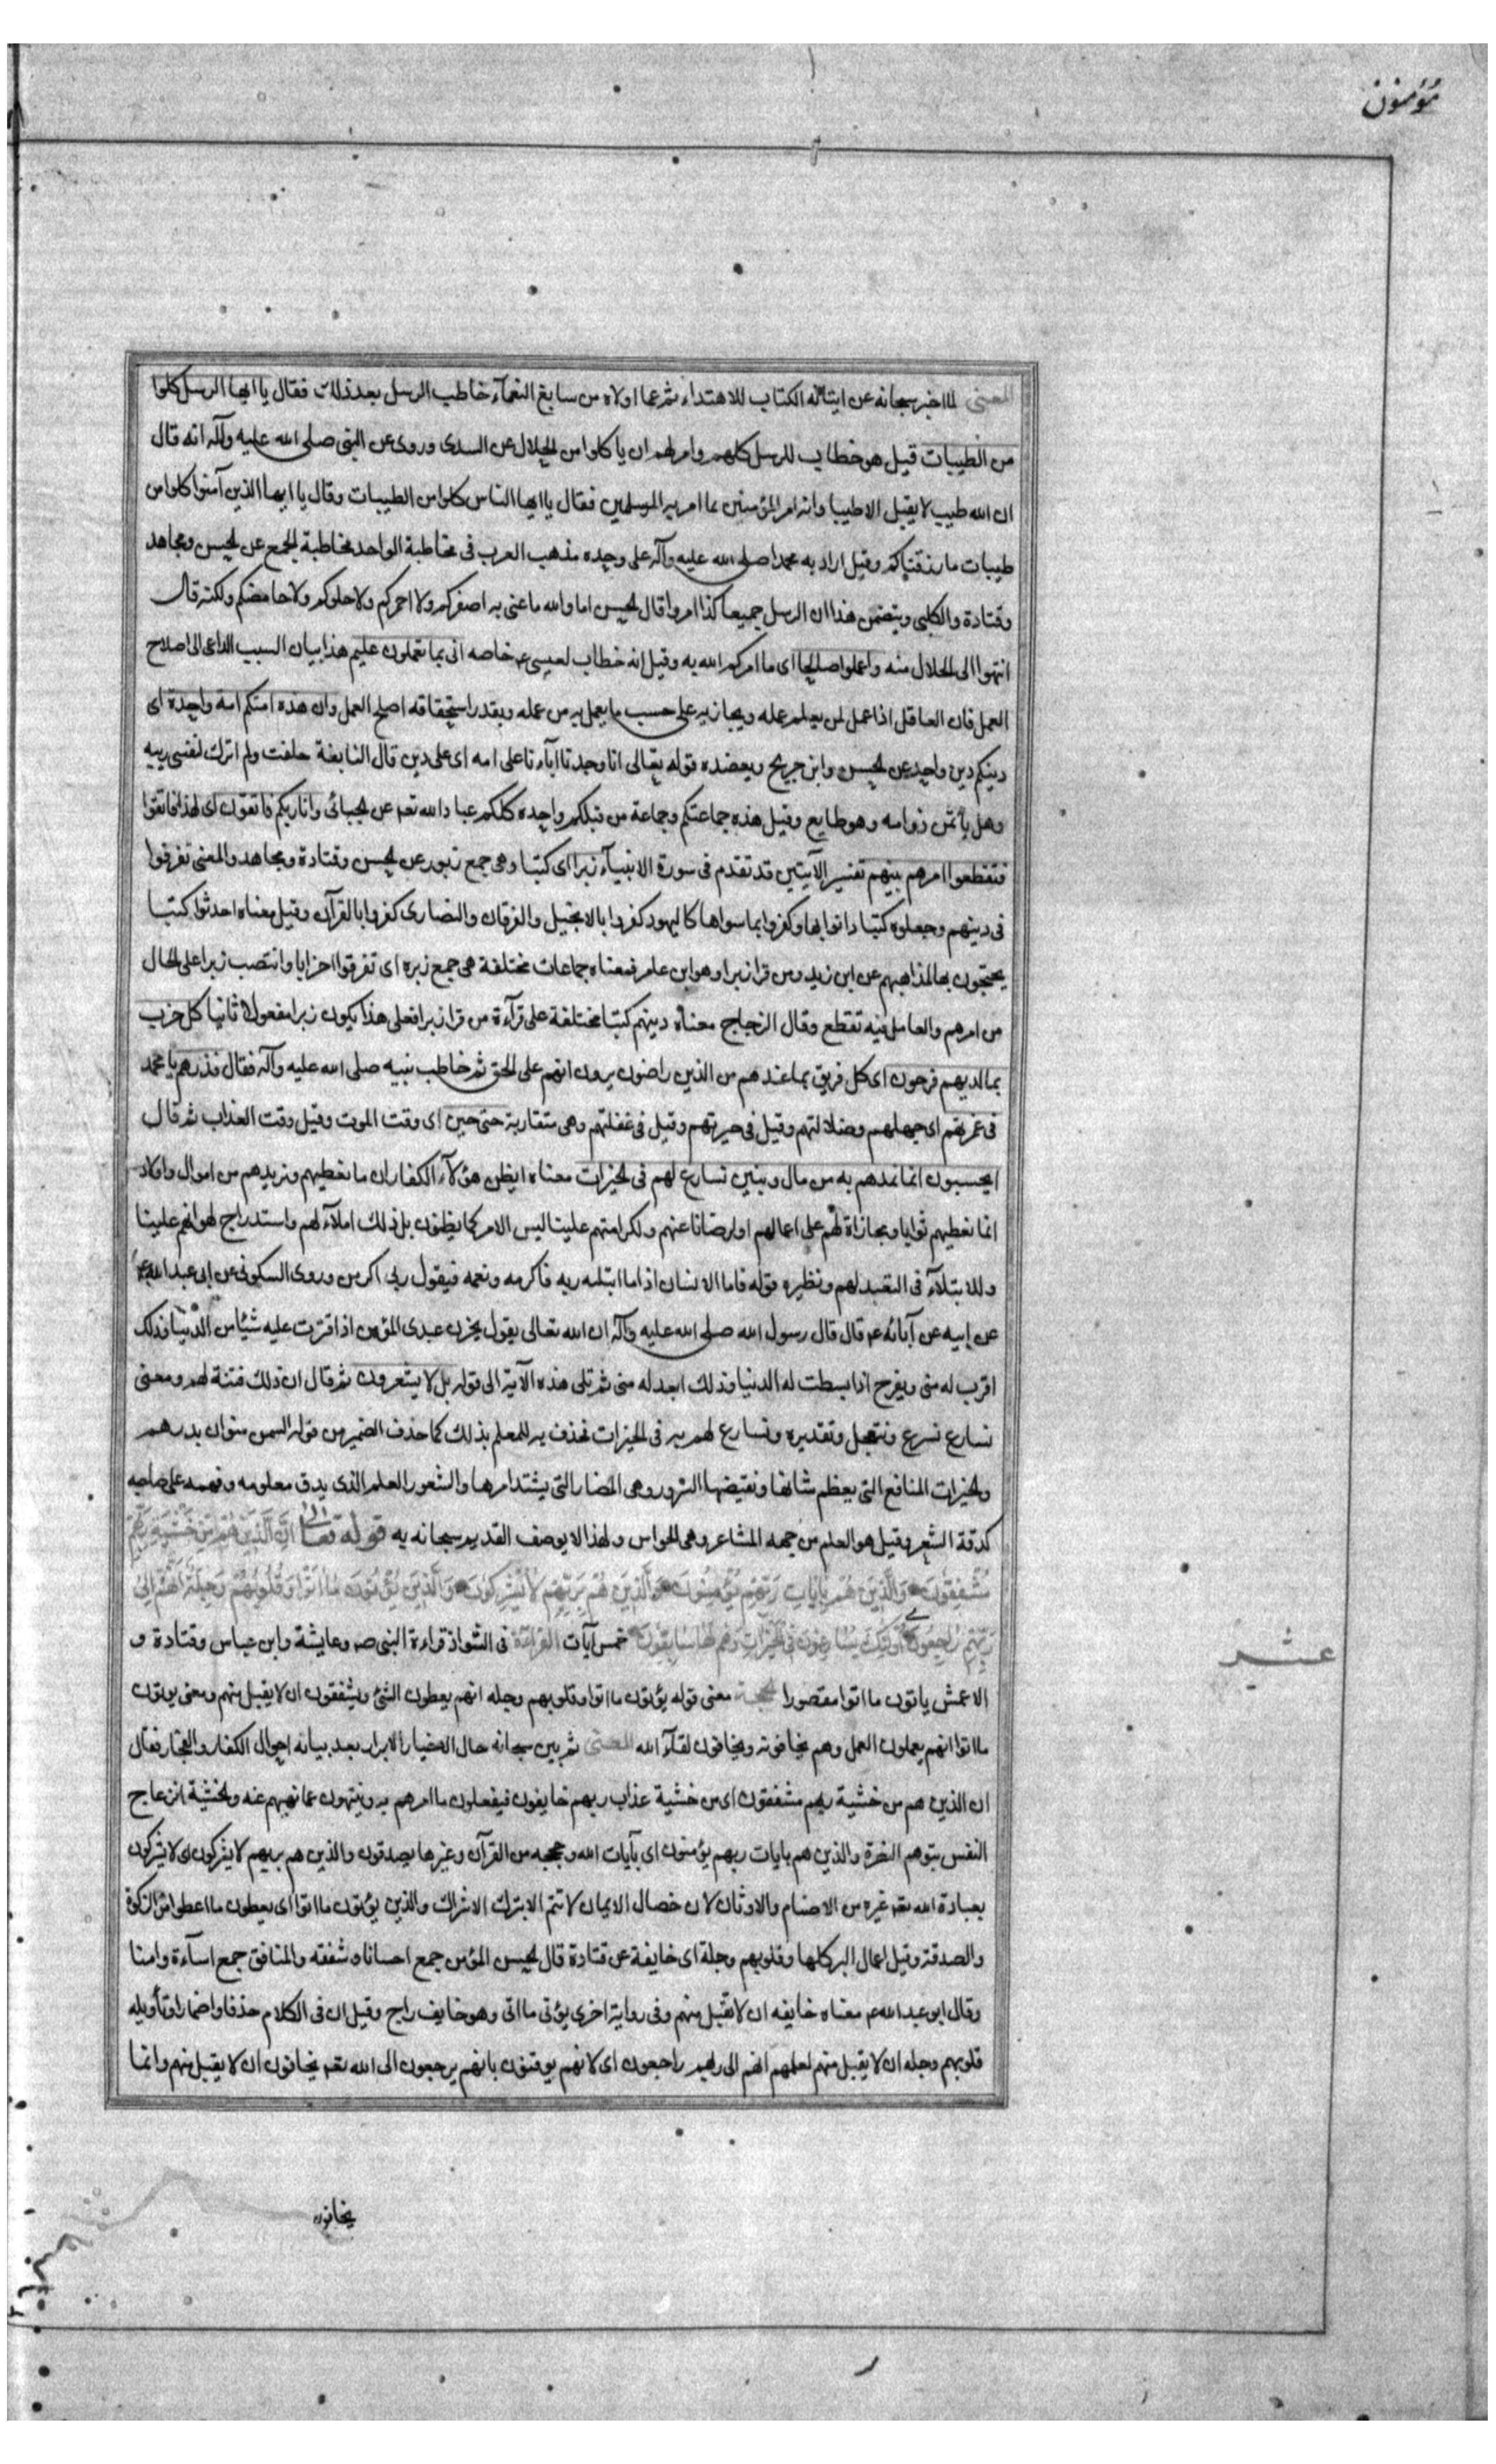 مؤمنون
المعنى لما اخبر سبحانه عن ايتائه الكتاب للاهتداء ثم عما اولاه من سابغ النعمآء خاطب الرسل بعد ذلك فقال يا ايها الرسل كلوا
من الطيبات قيل هو خطاب للرسل كلهم وامر لهم ان ياكلوا من الحلال عن السدى وروى عن النبى صلى الله عليه وآله انه قال
ان الله طيب لا يقبل الا طيبا وانه امر المؤمنين بما امر به المرسلين فقال يا ايها الناس كلوا من الطيبات وقال يا ايها الذين آمنوا كلوا من
طيبات ما رزقناكم وقيل اراد به محمدا صلى الله عليه وآله على وجده مذهب العرب فى مخاطبة الواحد مخاطبة الجمع عن الحسن ومجاهد
وقتادة والكلبى ويتضمن هذا ان الرسل جميعا كذا امروا قال الحسن اما والله ما عنى به اصفركم ولا احمركم ولا حلوكم ولا حامضكم ولكنه قال
انتهوا الى الحلال منه واعملوا صالحا اى ما امركم الله به وقيل انه خطاب لعيسى ع خاصه انى بما تعملون عليم هذا بيان السبب الداعى الى اصلاح
العمل فان العاقل اذا عمل لمن يعلم عمله ويجازيه على حسب ما يعمل به من عمله وبقدر استحقاقه اصلح العمل وان هذه امتكم امة واحدة اى
دينكم دين واحد عن الحسن وابن جريج ويعضده قوله تعالى انا وجدنا آباءنا على امه اى على دين قال النابغة حلفت ولم اترك لنفسى ريبه
وهل يأثمن ذو امه وهو طايع وقيل هذه جماعتكم وجماعة من قبلكم واحده كلكم عباد الله تعم عن الجبائى وانا ربكم فاتقون اى لهذا فاتقوا
فتقطعوا امرهم بينهم تفسير الآيتين قد تقدم فى سورة الانبيآء زبرا اى كتبا وهى جمع زبور عن الحسن وقتادة ومجاهد والمعنى تفرقوا
فى دينهم وجعلوه كتبا دانوا بها وكفروا بما سواها كاليهود كفروا بالانجيل والفرقان والنصارى كفروا بالقرآن وقيل معناه احدثوا كتبا
يحتجون بها لمذاهبهم عن ابن زيد ومن قرا زبرا وهو ابن عامر فمعناه جماعات مختلفة هى جمع زبره اى تفرقوا احزابا وانتصب زبرا على الحال
من امرهم والعامل فيه تقطع وقال الزجاج معناه دينهم كتبا مختلفة على قرآءة من قرا زبرا فعلى هذا يكون زبرا مفعولا ثانيا كل حزب
بما لديهم فرحون اى كل فريق بما عندهم من الذين راضون يرون انهم على الحق ثم خاطب نبيه صلى الله عليه وآله فقال فذرهم يا محمد
فى غمرتهم اى جهلهم وضلالتهم وقيل فى حيرتهم وقيل فى غفلتهم وهى متقاربة حتى حين اى وقت الموت وقيل وقت العذاب ثم قال
ايحسبون انما نمدهم به من مال وبنين نسارع لهم فى الخيرات معناه ايظن هؤلآء الكفار ان ما نعطيهم ونزيدهم من اموال واولاد
انما نعطيهم ثوابا ومجازاة لهم على اعمالهم او لرضانا عنهم ولكرامتهم علينا ليس الامر كما يظنون بل ذلك املآء لهم واستدراج لهوانهم علينا
وللابتلآء فى التعبد لهم ونظيره قوله فاما الانسان اذا ما ابتليه ربه فاكرمه ونعمه فيقول ربى اكرمن وروى السكونى عن ابى عبد الله ع
عن ابيه عن آبائه ع قال قال رسول الله صلى الله عليه وآله ان الله تعالى يقول يحزن عبدى المؤمن اذا قترت عليه شيئا من الدنيا وذلك
اقرب له منى ويفرح اذا بسطت له الدنيا وذلك ابعد له منى ثم تلى هذه الآية الى قوله بل لا يشعرون ثم قال ان ذلك فتنة لهم ومعنى
نسارع نسرع ونتعجل وتقديره ونسارع لهم به فى الخيرات فحذف به للعلم بذلك كما حذف الضمير من قوله السمن منوان بدرهم
والخيرات المنافع التى يعظم شانها ونقيضها الشرور وهى المضار التى يشتد امرها والشعور العلم الذى يدق معلومه وفهمه على صاحبه
كدقة الشعر وقيل هو العلم من جهه المشاعر وهى الحواس ولهذا لا يوصف القديم سبحانه به قوله تعالى ان الذين هم من خشية ربهم
مشفقون والذين هم بايات ربهم يؤمنون والذين هم بربهم لا يشركون والذين يؤتون ما اتوا وقلوبهم وجلة انهم الى
ربهم راجعون اولئك يسارعون فى الخيرات وهم لها سابقون خمس آيات القراءة فى الشواذ قراءة النبى ص وعايشة وابن عباس وقتادة و
عشر
الاعمش ياتون ما اتوا مقصورا الحجة معنى قوله يؤتون ما اتوا وقلوبهم وجله انهم يعطون الشئ ويشفقون ان لا يقبل منهم ومعنى يوتون
ما اتوا انهم يعملون العمل وهم يخافونه ويخافون لقآء الله المعنى ثم بين سبحانه حال الاخيار الابرار بعد بيانه احوال الكفار والفجار فقال
ان الذين هم من خشية ربهم مشفقون اى من خشية عذاب ربهم خايفون فيفعلون ما امرهم به وينتهون عما نهيهم عنه والخشية انزعاج
النفس بتوهم المضرة والذين هم بايات ربهم يؤمنون اى بآيات الله وحججه من القرآن وغيرها يصدقون والذين هم بربهم لا يشركون اى لا يشركون
بعبادة الله تعم غيره من الاصنام والاوثان لان خصال الايمان لا تتم الا بترك الاشراك والذين يؤتون ما اتوا اى يعطون ما اعطوا من الزكوة
والصدقة وقيل اعمال البر كلها وقلوبهم وجلة اى خايفة عن قتادة قال الحسن المؤمن جمع احسانا وشفقه والمنافق جمع اسآءة وامنا
وقال ابو عبد الله ع معناه خايفه ان لا تقبل منهم وفى رواية اخرى يؤتى ما اتى وهو خايف راج وقيل ان فى الكلام حذفا واضمارا وتأويله
قلوبهم وجله ان لا يقبل منهم لعلمهم انهم الى ربهم راجعون اى لانهم يوقنون بانهم يرجعون الى الله تعم يخافون ان لا يقبل منهم وانما
يخافون